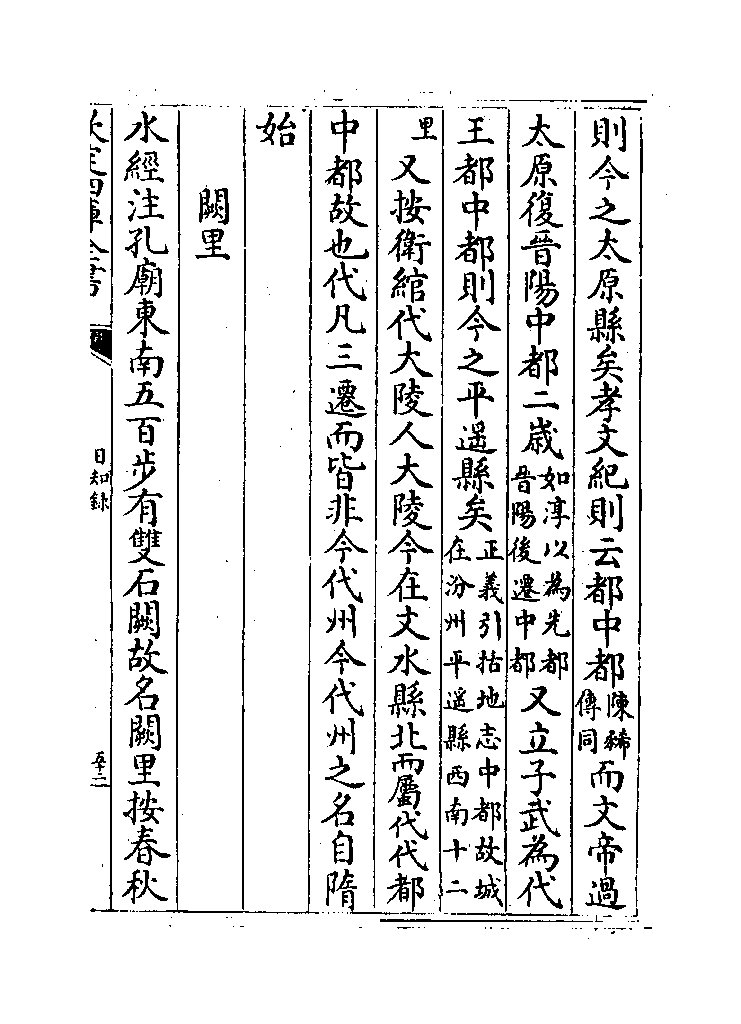 則今之太原縣矣孝文紀則云都中都陳豨傳同而文帝過
太原復晉陽中都二歲如淳以為先都晉陽後遷中都又立子武為代
王都中都則今之平遥縣矣正義引括地志中都故城在汾州平遥縣西南十二
里又按衛綰代大陵人大陵今在文水縣北而屬代代都
中都故也代凡三遷而皆非今代州今代州之名自隋
始
闕里
水經注孔廟東南五百步有雙石闕故名闕里按春秋
欽定四庫全書
日知錄
五十二